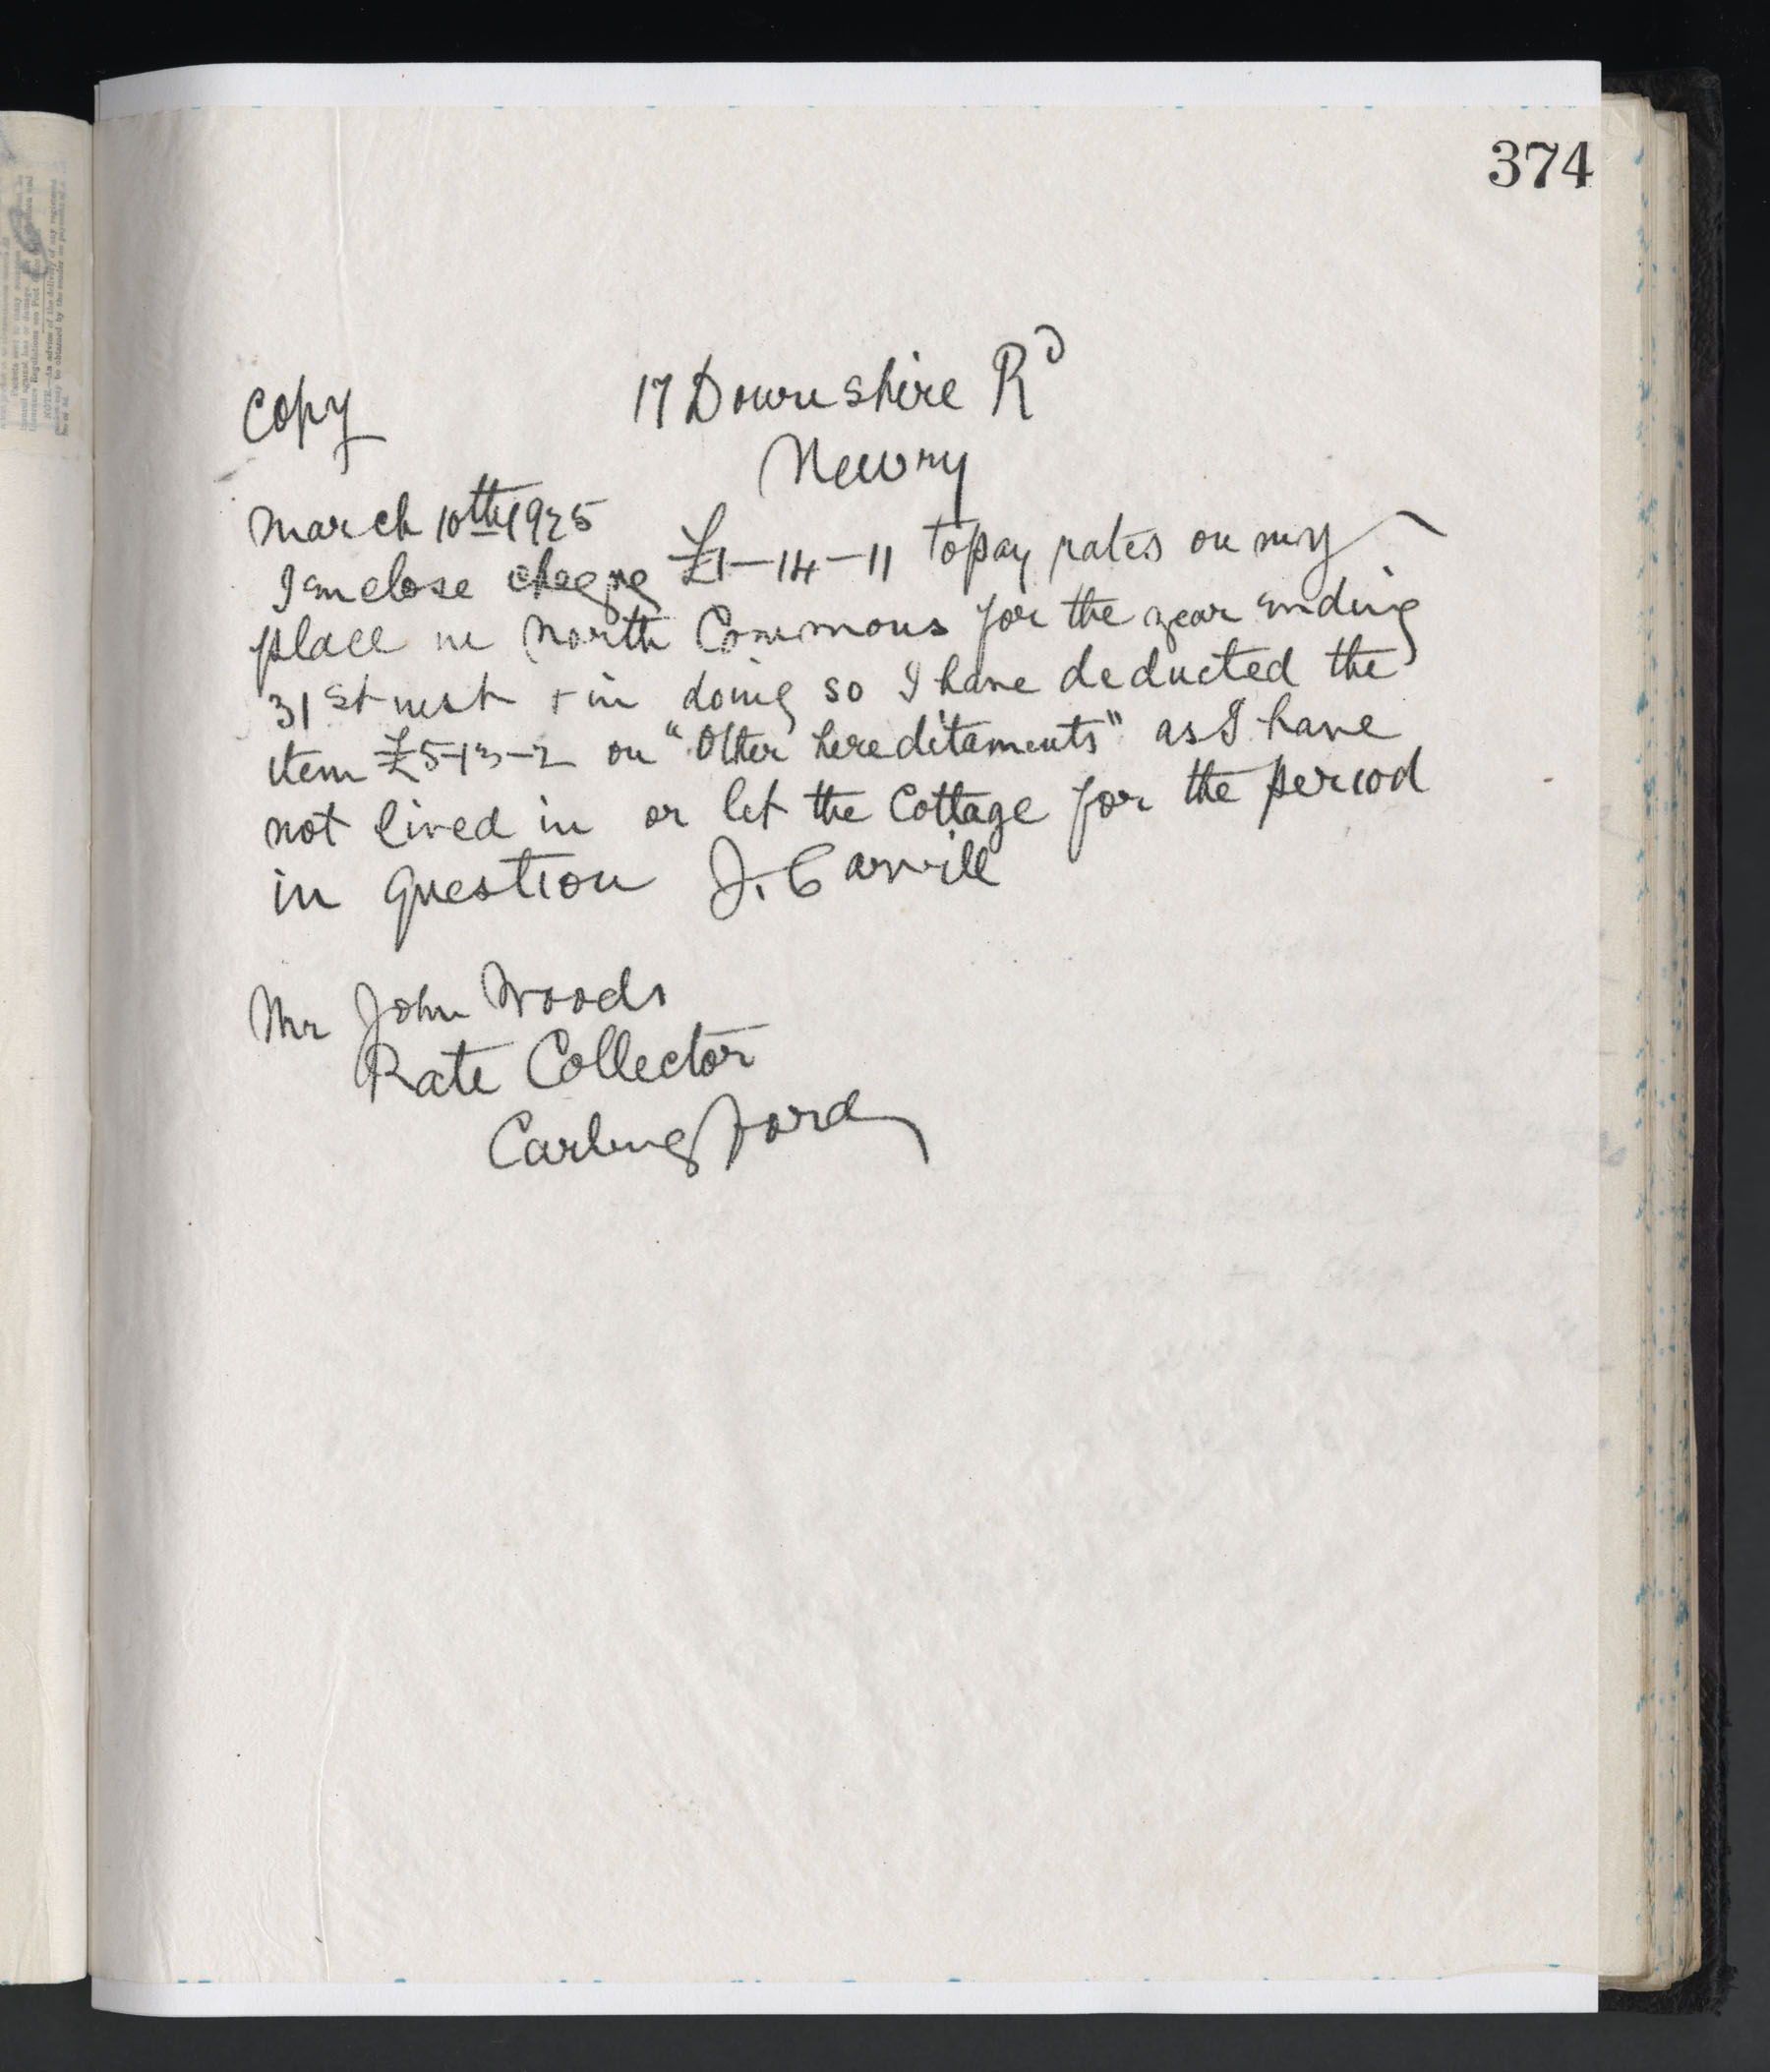 374
Copy
17 Downshire Rd
Newry
March 10th 1925
I enclose cheque £1-14-11 to pay rates on my
place in North Commons for the year ending
31st inst + in doing so I have deducted the
item £5-13-2 on "Other hereditaments" as I have
not lived in or let the Cottage for the period
in question J. Carvill
Mr John Woods
Rate Collector
Carlingford